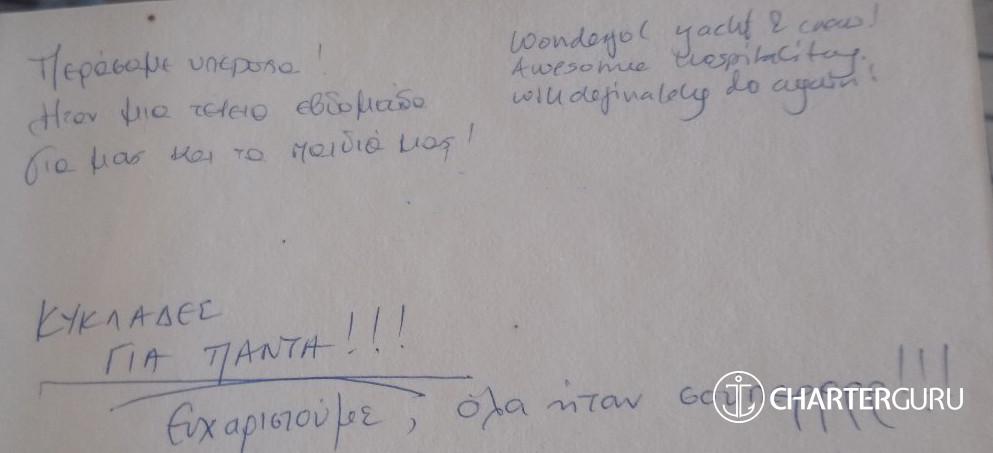 Περάσαμε υπεροχα!
Ηταν μια τελεια εβδομαδα
για μας και τα παιδιά μας!
Wonderful yacht & crew!
Awesome Hospitality.
will definately do again!
ΚΥΚΛΑΔΕΣ
ΓΙΑ ΠΑΝΤΑ!!!
Ευχαριστούμε, όλα ήταν !!!
CHARTERGURU